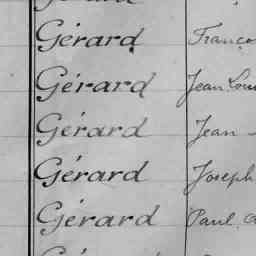 Gérard Franço
Gérard Jean Loui
Gérard Jean
Gérard Joseph
Gérard Paul